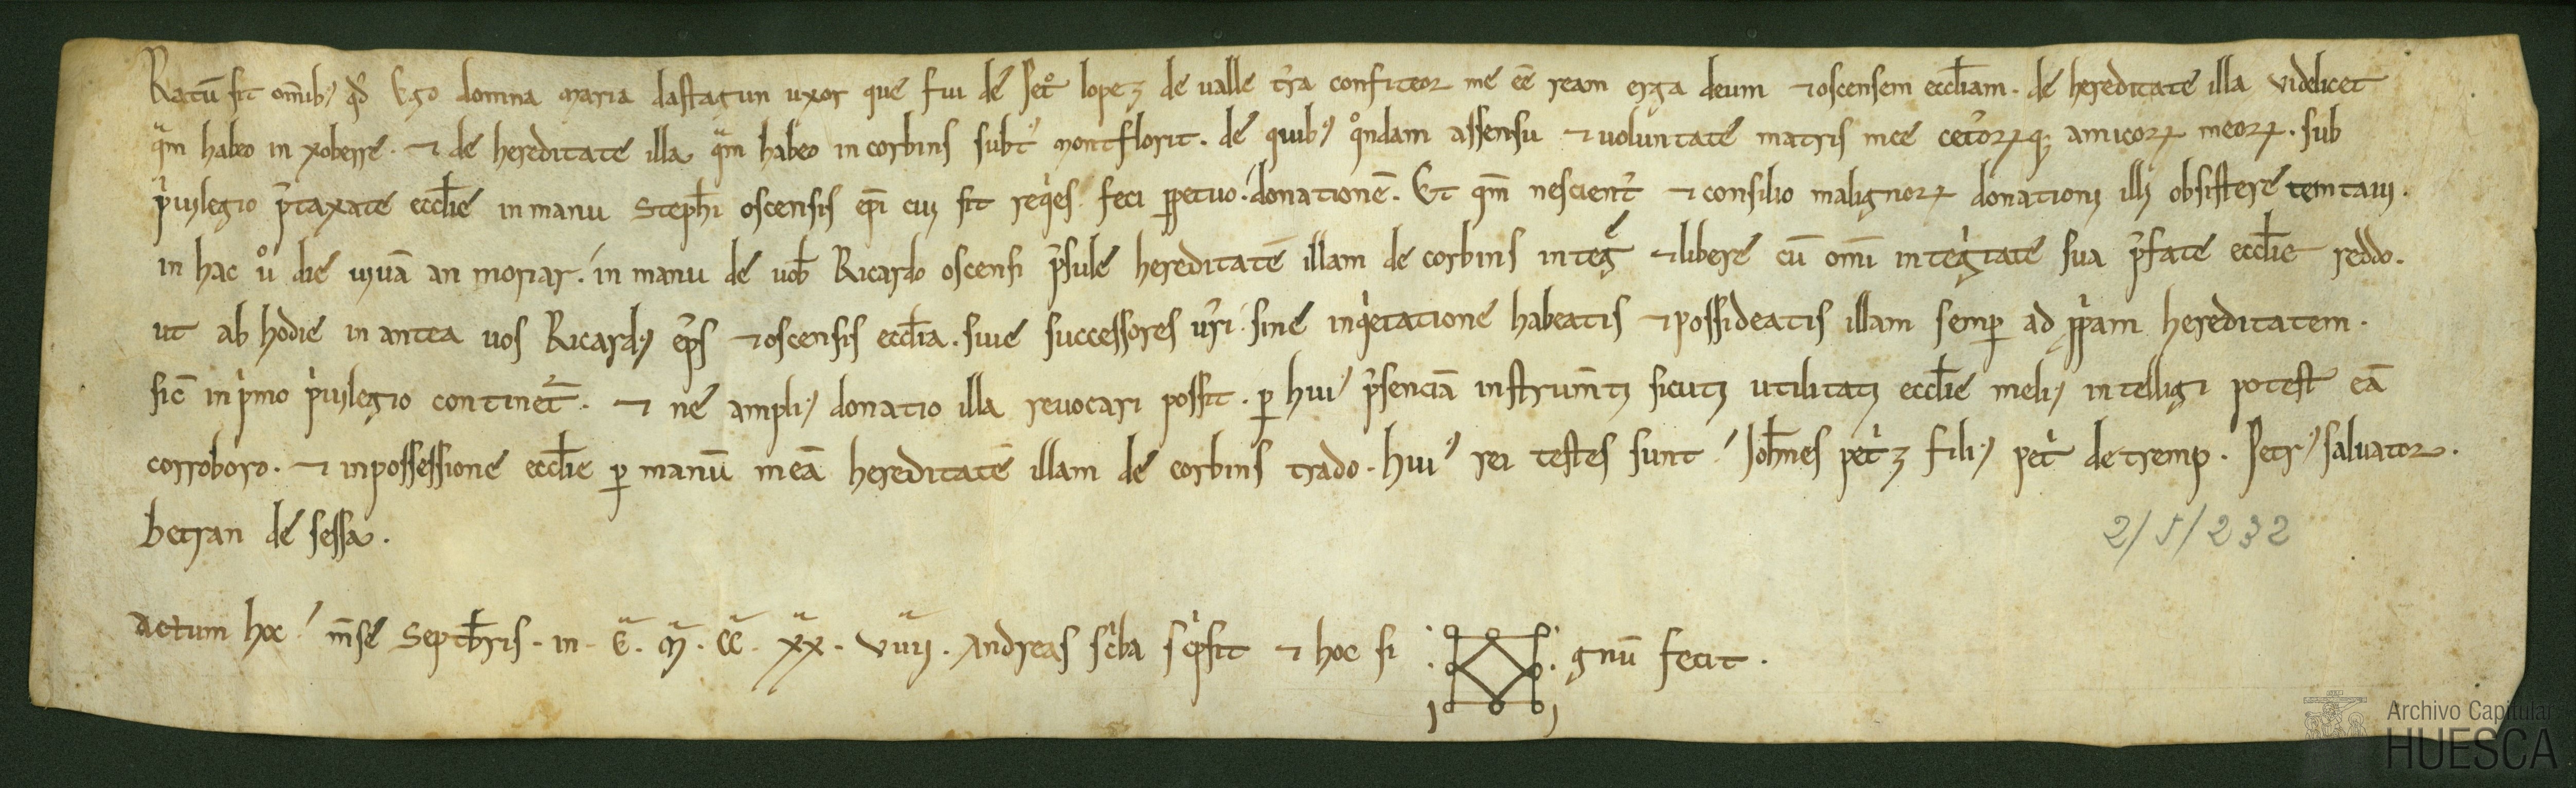 Ratū sit omībꝰ qđ Ego domna maria dastagun uxor que fui de Pet͛ lopeꝫ de ualle t͛ra confiteor me eē ream erga deum ⁊ oscensem eccl̄iam. de hereditate illa videlicet
qᵃm habeo in xoberre. ⁊ de hereditate illa qᵃm habeo in corbins subtꝰ montflorit. de quibꝰ qͦndam assensu ⁊ uoluntate matris mee cet͛oꝝqꝫ amicoꝝ meoꝝ. sub
pⁱuilegio p̄taxate eccl̄ie in manu Steph̄i oscensis ep̄i cui sit reqⁱes feci ꝑpetuo donationē. Et qm̄ nescient͛ ⁊ consilio malignoꝝ donationi illi obsistere temtaui.
in hac uͦ die uiuā an moriar. in manu de uob̄ Ricardo oscensi p̄sule hereditatē illam de corbins integᵉ ⁊ libere cū om̄i integⁱtate sua p̄fate eccl̄ie reddo.
ut ab hodie in antea uos Ricardꝰ ep̄s ⁊ oscensis eccl̄ia. siue successores ur̄i sine inqⁱetatione habeatis ⁊ possideatis illam semꝑ ad ꝓpⁱam hereditatem.
sic̄ in pⁱmo pⁱuilegio continet᷑. ⁊ ne ampliꝰ donatio illa reuocari possit. ꝑ huiꝰ p̄senciā instrum̄ti sicuti utilitati eccl̄ie meliꝰ intelligi potest eā
corroboro. ⁊ in possessione eccl̄ie ꝑ manū meā hereditatē illam de corbins trado. huiꝰ rei testes sunt Joh̄nes petⁱꝫ filiꝰ petⁱ de tremp. Petrꝰ saluator.
betran de sessa.
2/5/232
Actum hoc m̄se Septēbris. in. E. M. CC. XX. VIIII. Andreas scⁱba scⁱpsit ⁊ hoc si gnū fecit.
Archivo Capitular
HUESCA